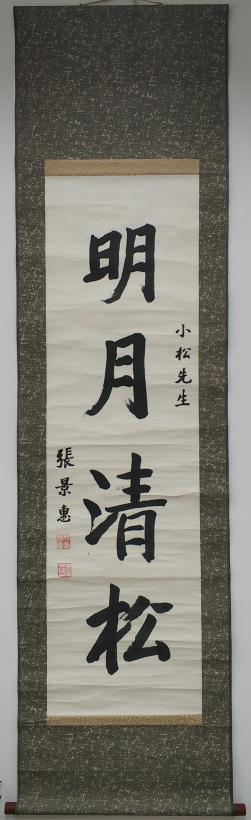 小松先生
明月清松
張景惠